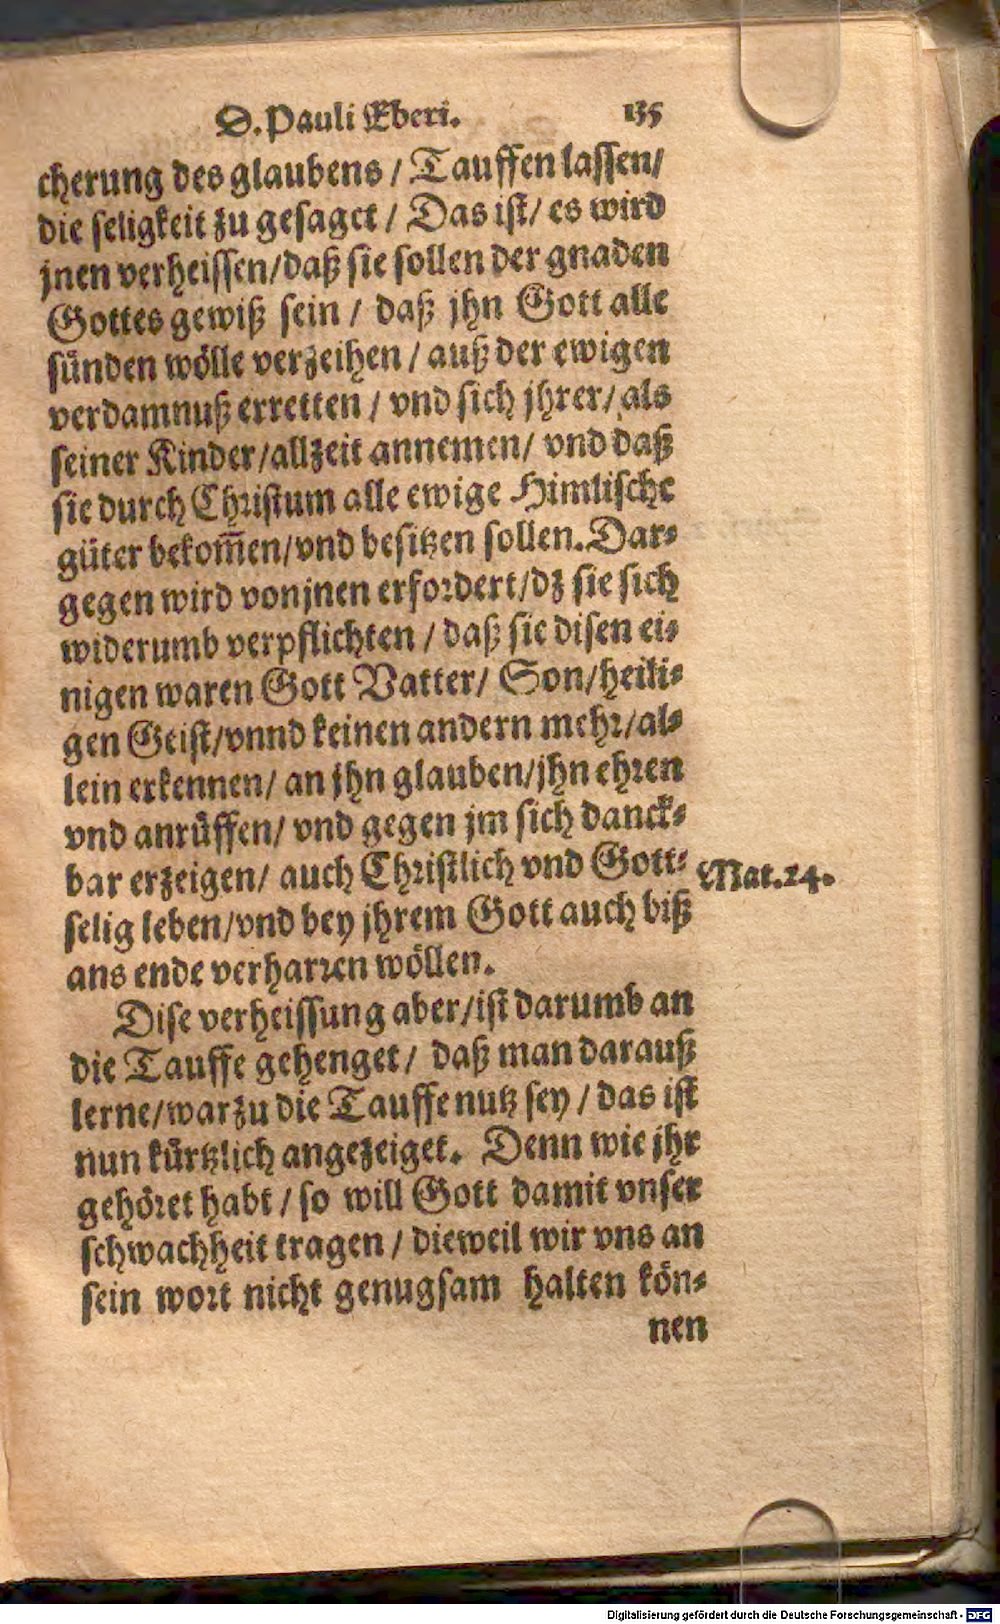 D. Pauli Eberi. 135
cherung des glaubens / Tauffen lassen/
die seligkeit zu gesaget / Das ist/ es wird
jnen verheissen/daß sie sollen der gnaden
Gottes gewiß sein / daß jhn Gott alle
sünden wölle verzeihen / auß der ewigen
verdamnuß erretten / vnd sich jhrer/ als
seiner Kinder/allzeit annemen/ vnd daß
sie durch Christum alle ewige Himlische
güter bekom̃en/vnd besitzen sollen. Dar-
gegen wird von jnen erfordert/dz sie sich
widerumb verpflichten / daß sie disen ei-
nigen waren Gott Vatter/ Son/heili-
gen Geist/vnnd keinen andern mehr/al-
lein erkennen/ an jhn glauben/jhn ehren
vnd anrüffen/ vnd gegen jm sich danck-
bar erzeigen/ auch Christlich vnd Gott-
Mat.24.
selig leben/vnd bey jhrem Gott auch biß
ans ende verharren wöllen.
Dise verheissung aber/ist darumb an
die Tauffe gehenget/ daß man darauß
lerne/warzu die Tauffe nutz sey / das ist
nun kürtzlich angezeiget. Denn wie jhr
gehöret habt / so will Gott damit vnser
schwachheit tragen / dieweil wir vns an
sein wort nicht genugsam halten kön-
nen
Digitalisierung gefördert durch die Deutsche Forschungsgemeinschaft - DFG